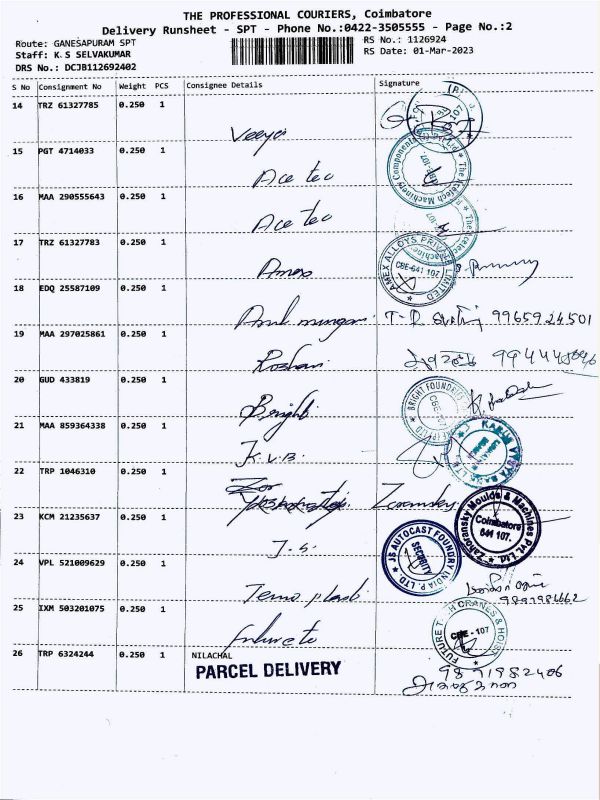 THE PROFESSIONAL COURIERS, Coimbatore
Delivery Runsheet - SPT - Phone No.:0422-3505555 - Page No.:2
Route: GANESAPURAM SPT
RS No.: 1126924
Staff: K S SELVAKUMAR
RS Date: 01-Mar-2023
DRS No.: DCJB112692402
S No Consignment No Weight PCS Consignee Details Signature
14 TRZ 61327785 0.250 1
15 PGT 4714033 0.250 1
Ace tec
The Acetech Machinery Components
16 MAA 290555643 0.250 1
Ace tec
17 TRZ 61327783 0.250 1
Amex
AMEX ALLOYS PRIVATE LIMITED
CBE-641 107
18 EDQ 25587109 0.250 1
9965924501
19 MAA 297025861 0.250 1
Roshani
20 GUD 433819 0.250 1
Bright
BRIGHT FOUNDRIES
CBE-107
21 MAA 859364338 0.250 1
K.V.B.
KARUR VYSYA BANK LTD
22 TRP 1046310 0.250 1
Zoransky
Zakovansky Moulds & Machines Pvt. Ltd.
Coimbatore
641 107.
23 KCM 21235637 0.250 1
J.S.
JS AUTOCAST FOUNDRY INDIA P. LTD
SECURITY
24 VPL 521009629 0.250 1
9891981662
25 IXM 503201075 0.250 1
Future te
FUTURE TECH CRANES & HOIST
CBE - 107
26 TRP 6324244 0.250 1 NILACHAL
PARCEL DELIVERY
9891982406